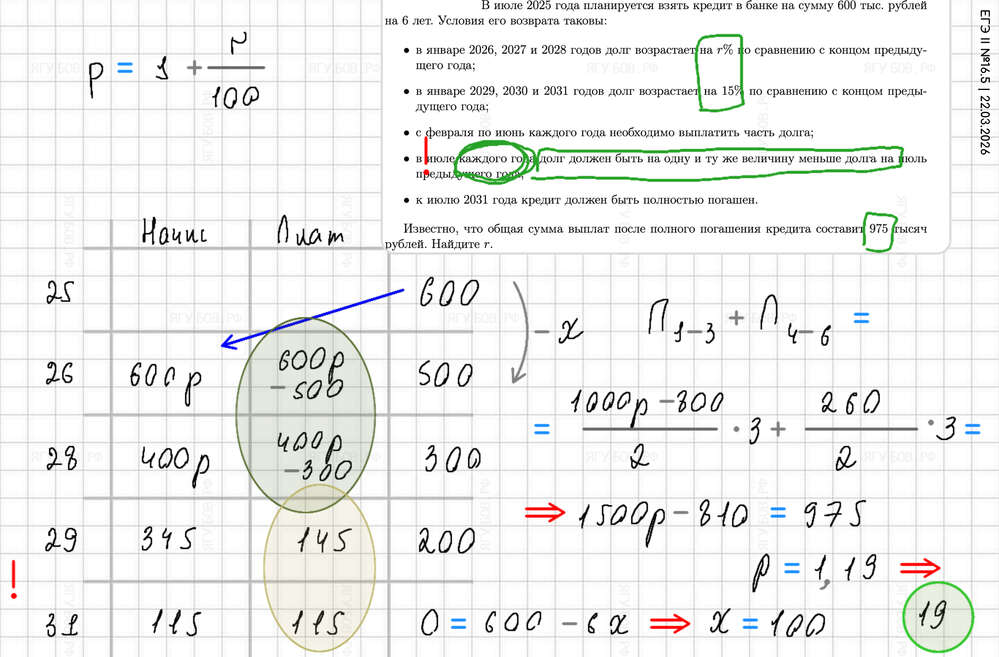 В июле 2025 года планируется взять кредит в банке на сумму 600 тыс. рублей
на 6 лет. Условия его возврата таковы:
• в январе 2026, 2027 и 2028 годов долг возрастает на r% по сравнению с концом предыду-
щего года;
• в январе 2029, 2030 и 2031 годов долг возрастает на 15% по сравнению с концом преды-
дущего года;
• с февраля по июнь каждого года необходимо выплатить часть долга;
• в июле каждого года долг должен быть на одну и ту же величину меньше долга на июль
предыдущего года;
• к июлю 2031 года кредит должен быть полностью погашен.
Известно, что общая сумма выплат после полного погашения кредита составит 975 тысяч
рублей. Найдите r.
ЕГЭ II №16.5 | 22.03.2026
p = 1 + r/100
Начис Плат
25 600
26 600p 600p - 500 500
28 400p 400p - 300 300
29 345 145 200
! 31 115 115 0 = 600 - 6x ⇒ x = 100
- x
П1-3 + П4-6 =
= (1000p - 800)/2 · 3 + 260/2 · 3 =
⇒ 1500p - 810 = 975
p = 1,19 ⇒
19
!
ЯГУБОВ.РФ